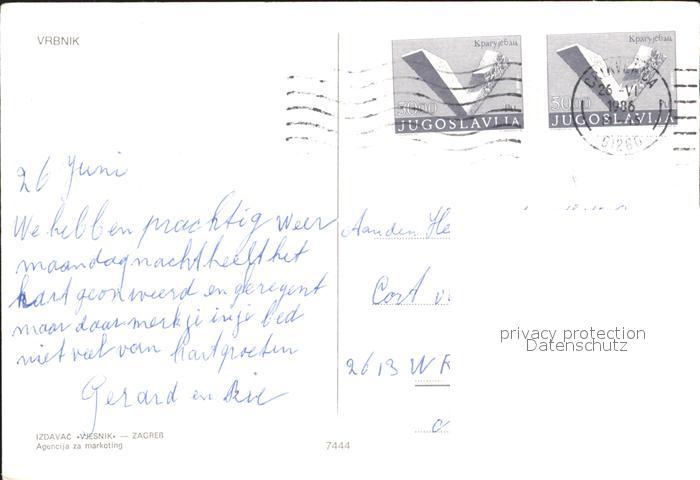 VRBNIK
Крагујевац
5000
JUGOSLAVIJA
Крагујевац
5000
JUGOSLAVIJA
26 -VI-
1986
51280
26 Juni
We hebben prachtig weer
maandagnacht heeft het
hard geonweerd en geregent
maar daar merk je in je bed
niet veel van hartgroeten
Gerard en Rie
Aan den He
Cort v
2613 W
privacy protection
Datenschutz
IZDAVAČ «VJESNIK» — ZAGREB
Agencija za marketing
7444